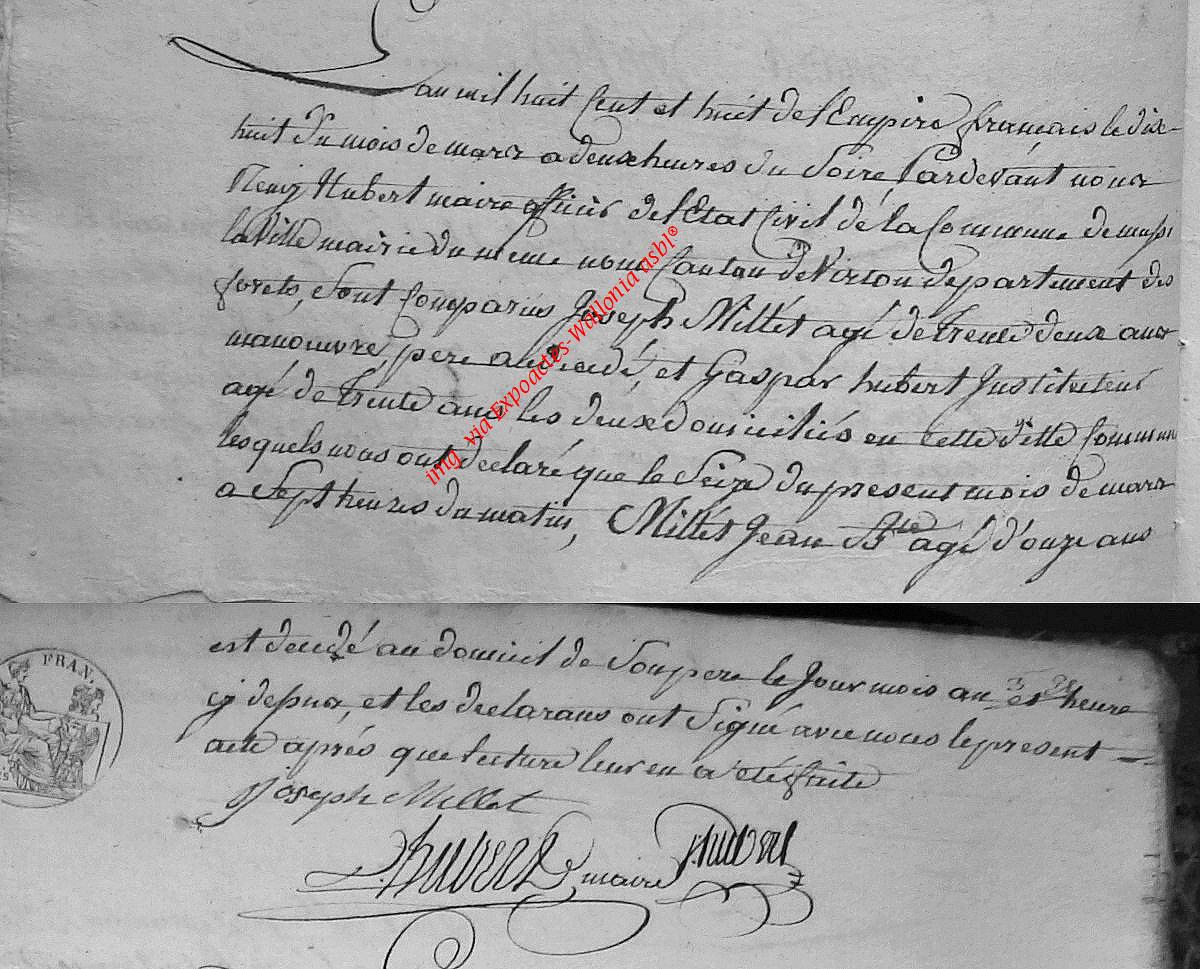 L'an mil huit Cent et huit de l'Empire français le dix-
huit du mois de mars a deux heures du Soire Pardevant nous
Remy Hubert maire officier de l'Etat Civil de la Commune de mussi
la Ville mairie du meme nom Canton de Virton departement des
forets, Sont Comparus Joseph Millet agé de Trente deux ans
manouvre, pere au decedé, et Gaspar hubert Instituteur
agé de Trente ans les deux domiciliés en cette ditte Commune
lesquels nous ont declaré que le Seize du present mois de mars
a Sept heures du matin, Millet Jean Bte agé d'onze ans
est decedé au domicil de Son pere le Jour mois an et heure
cy dessus, et les declarans ont Signé avec nous le present
acte aprés que lecture leur en a eté faite
Joseph Millet
Hubert maire Hubert
FRAN.
img via Expoactes-Wallonia asbl®